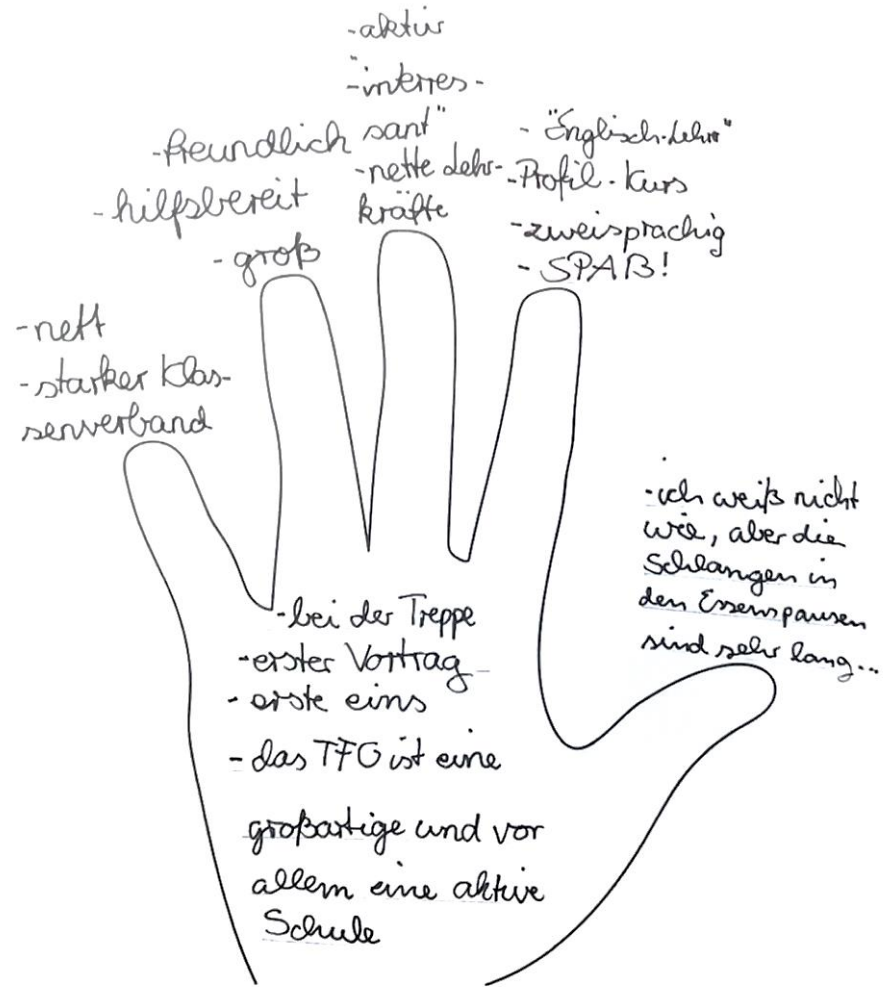 -nett
-starker Klas-
senverband
-freundlich
-hilfsbereit
-groß
-aktiv
-"interres-
sant"
-nette Lehr-
kräfte
- "Englisch-Lehrer"
-Profil-Kurs
-zweisprachig
- SPAß!
-ich weiß nicht
wie, aber die
Schlangen in
den Essenspausen
sind sehr lang...
-bei der Treppe
-erster Vortrag
- erste eins
- das TFG ist eine
großartige und vor
allem eine aktive
Schule